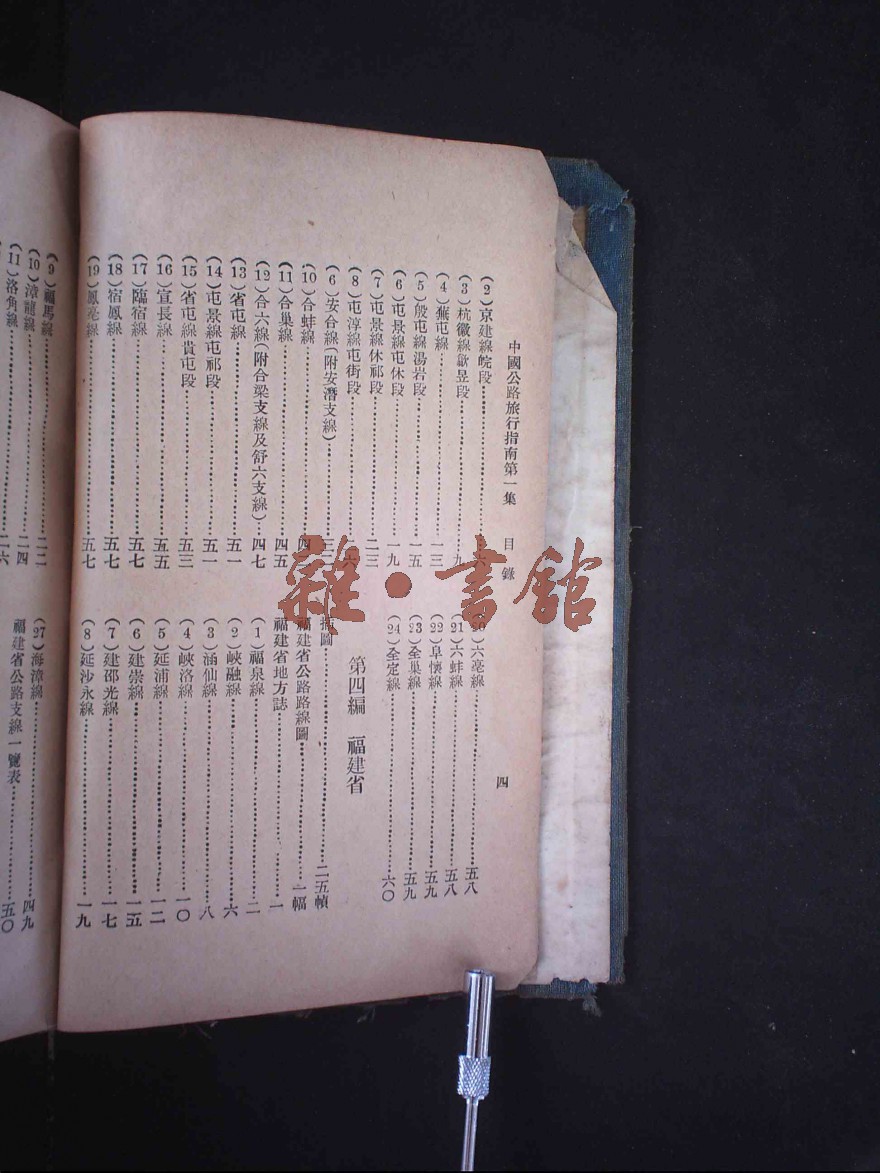 中國公路旅行指南第一集 目錄 四
(2)京建線皖段
(3)杭徽線歙昱段 九
(4)蕪屯線 一三
(5)殷屯線湯岩段 一五
(6)屯景線屯休段 一九
(7)屯景線休祁段 二三
(8)屯淳線屯街段
(6)安合線(附安潛支線)
(10)合蚌線
(11)合巢線 四五
(12)合六線(附合梁支線及舒六支線) 四七
(13)省屯線 五一
(14)屯景線屯祁段 五一
(15)省屯線貴屯段 五三
(16)宣長線 五五
(17)臨宿線 五七
(18)宿鳳線 五七
(19)鳳亳線 五七
(20)六亳線 五八
(21)六蚌線 五八
(22)阜懷線 五九
(23)全巢線 五九
(24)全定線 六〇
第四編 福建省
插圖 二五幀
福建省公路路線圖 一幅
福建省地方誌 一
(1)福泉線 二
(2)峽融線 六
(3)涵仙線 八
(4)峽洛線 一〇
(5)延浦線 一二
(6)建崇線 一五
(7)建邵光線 一七
(8)延沙永線 一九
(9)福馬線 二二
(10)漳龍線 二四
(11)洛角線 二六
(27)海漳線 四九
福建省公路支線一覽表 五〇
雜·書館